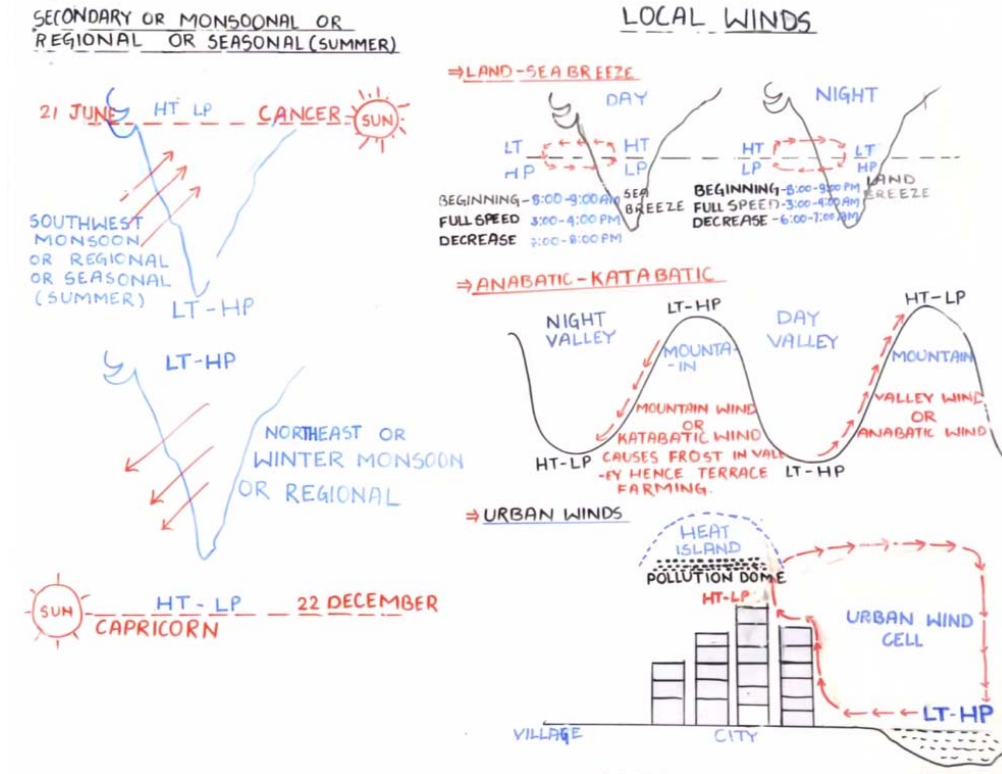 SECONDARY OR MONSOONAL OR
REGIONAL OR SEASONAL (SUMMER)
21 JUNE HT LP CANCER SUN
SOUTHWEST
MONSOON
OR REGIONAL
OR SEASONAL
(SUMMER)
LT-HP
LT-HP
NORTHEAST OR
WINTER MONSOON
OR REGIONAL
SUN HT-LP 22 DECEMBER
CAPRICORN
LOCAL WINDS
⇒LAND-SEA BREEZE
DAY
LT HT
HP LP
BEGINNING-8:00-9:00 AM
FULL SPEED 3:00-4:00 PM
DECREASE 7:00-8:00 PM
SEA
BREEZE
NIGHT
HT LT
LP HP
BEGINNING-8:00-9:00 PM
FULL SPEED-3:00-4:00 AM
DECREASE-6:00-7:00 AM
LAND
BREEZE
⇒ANABATIC-KATABATIC
NIGHT
VALLEY
LT-HP
MOUNTA-
-IN
HT-LP
MOUNTAIN WIND
OR
KATABATIC WIND
CAUSES FROST IN VALL
-EY HENCE TERRACE
FARMING.
DAY
VALLEY
HT-LP
MOUNTAIN
VALLEY WIND
OR
ANABATIC WIND
LT-HP
⇒URBAN WINDS
HEAT
ISLAND
POLLUTION DOME
HT-LP
URBAN WIND
CELL
LT-HP
VILLAGE CITY